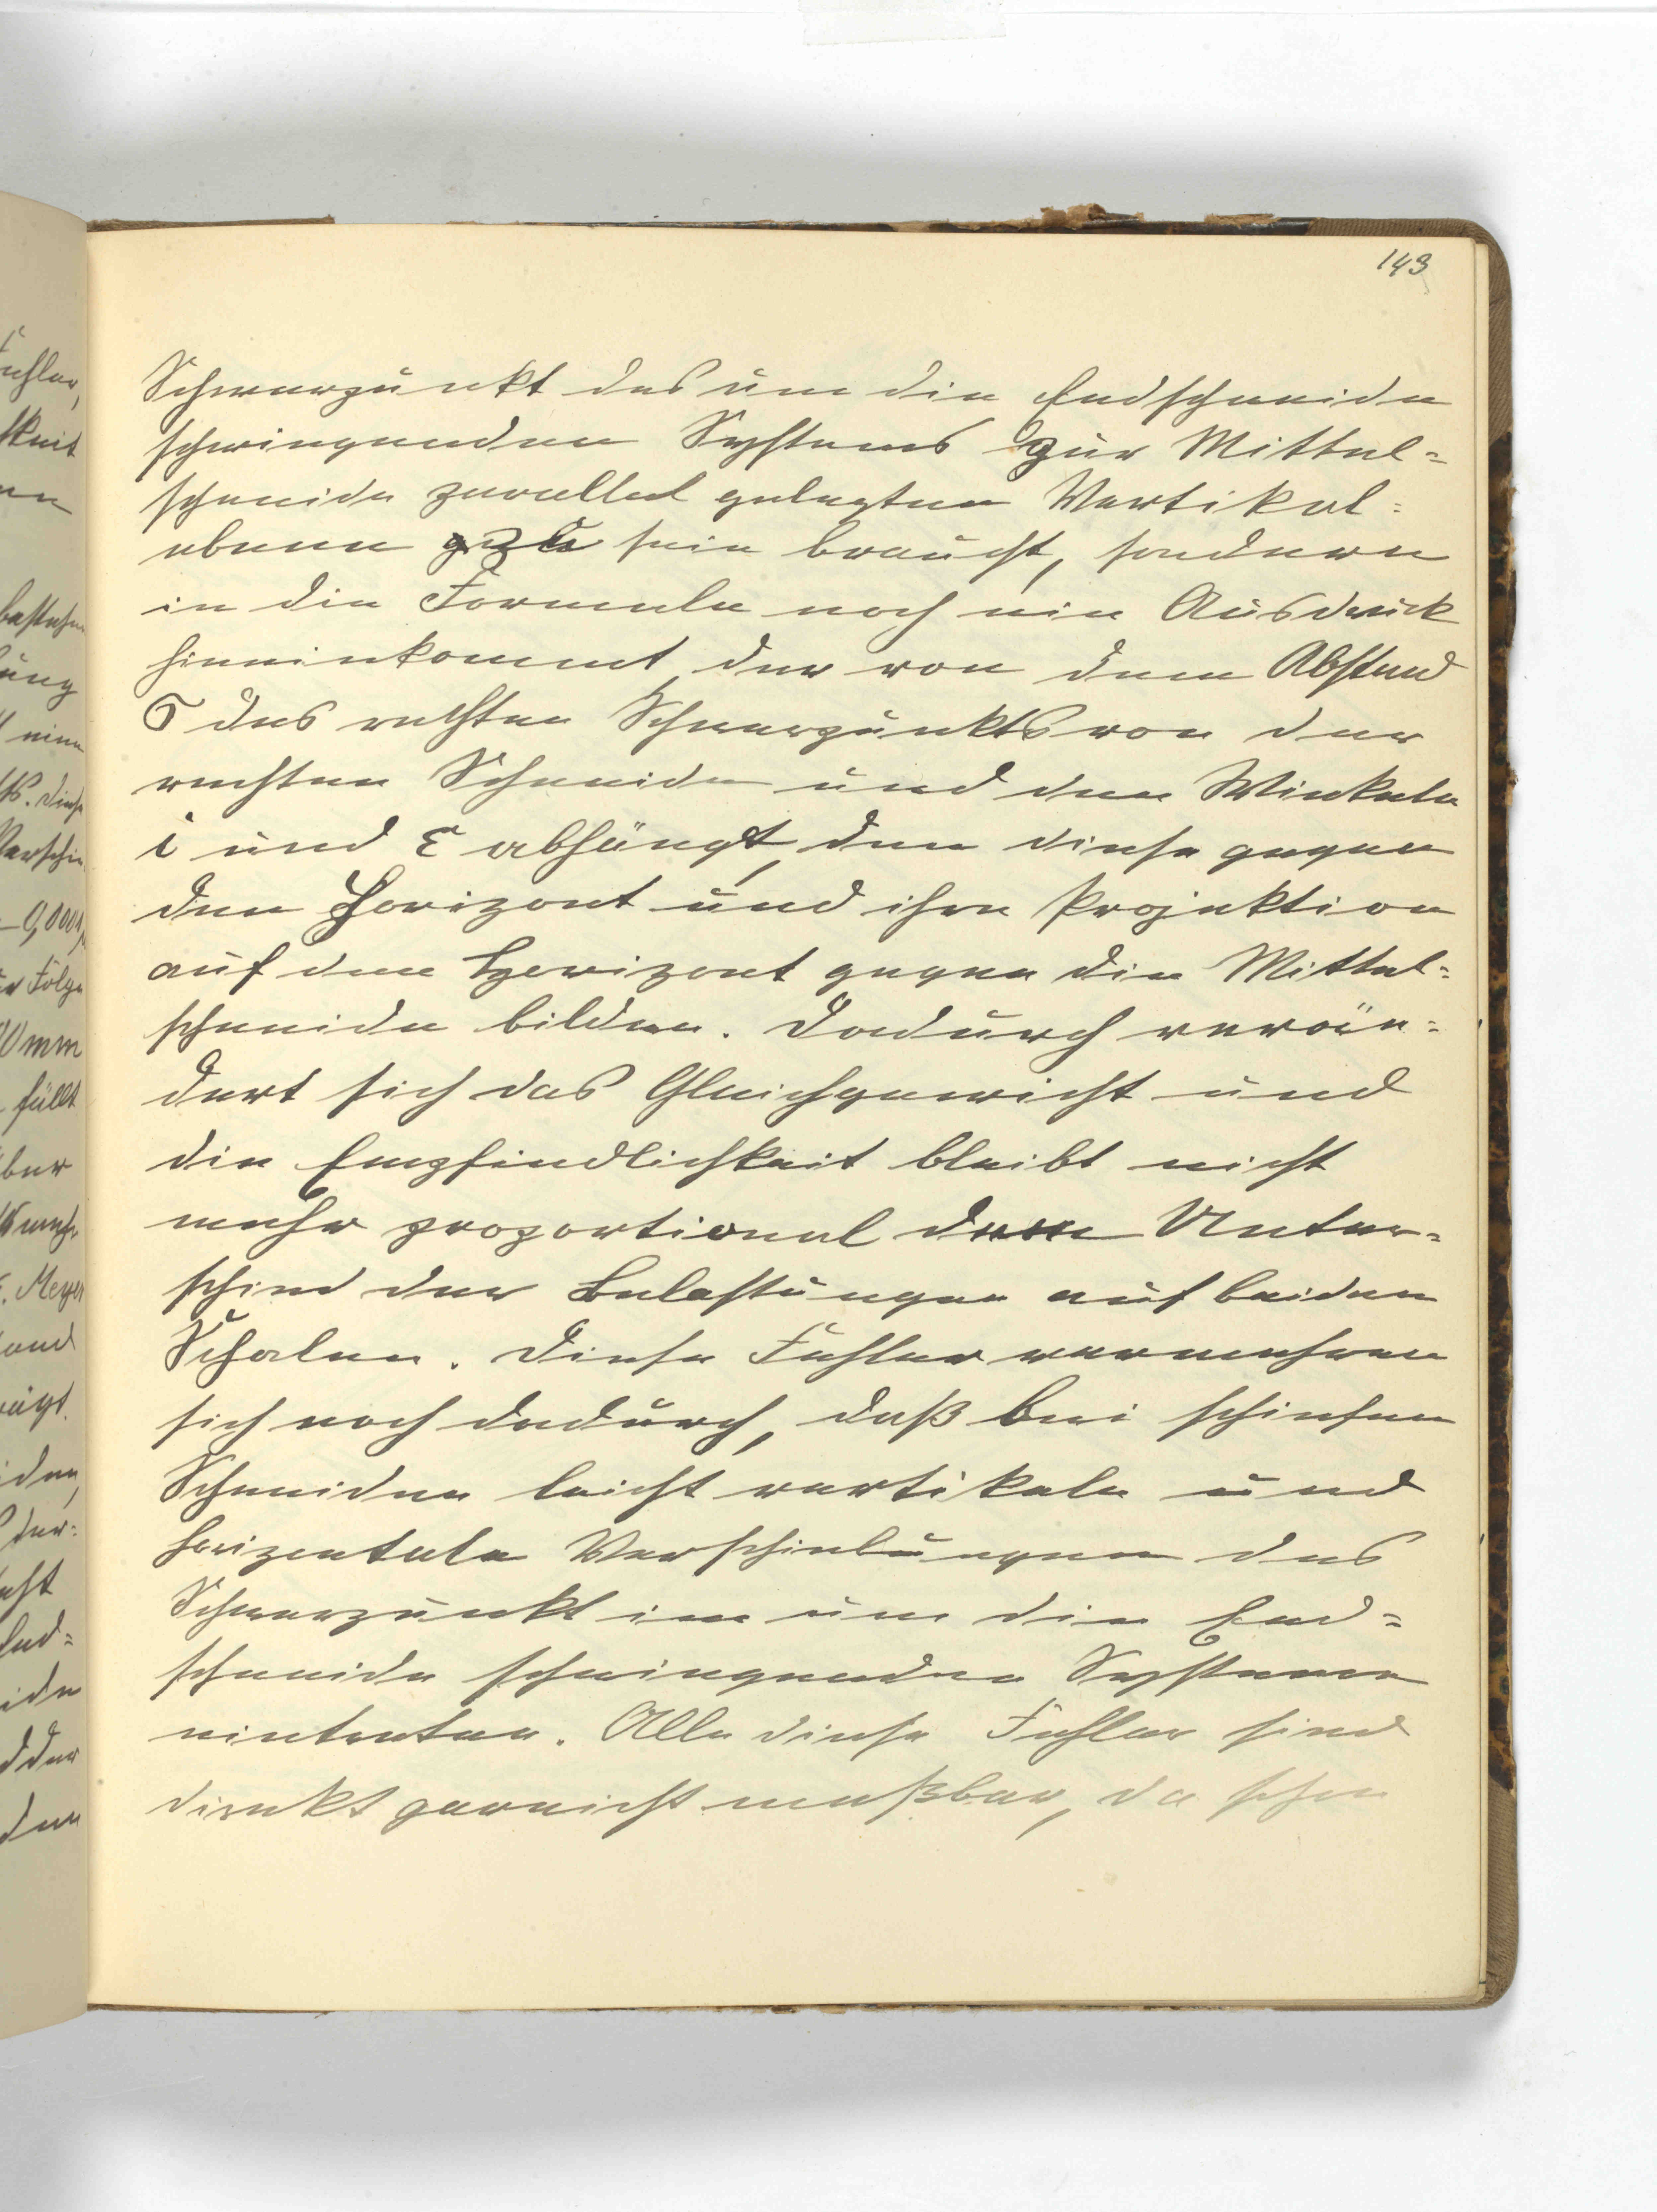 143
Schwerpunkt des um die Endschneide
schwingenden Systems zur Mittel=
schneide parallel gelegten Vertikal=
ebene zu sein braucht, sondern
in die Formeln noch ein Ausdruck
hineinkommt, der von dem Abstand
σ des rechten Schwerpunkts von der
rechten Schneide und den Winkeln
i und ε abhängt, den diese gegen
den Horizont und ihre Projektion
auf den Horizont gegen die Mittel=
schneide bilden. Dadurch verän=
dert sich das Gleichgewicht und
die Empfindlichkeit bleibt nicht
mehr proportional dem Unter=
schied der Belastungen auf beiden
Schalen. Diese Fehler vermehren
sich noch dadurch, daß bei schiefen
Schneiden leicht vertikale und
horizontale Verschiebungen des
Schwerpunkt im um die End=
schneide schwingenden Systeme
eintreten. Alle diese Fehler sind
direkt garnicht meßbar, da schon